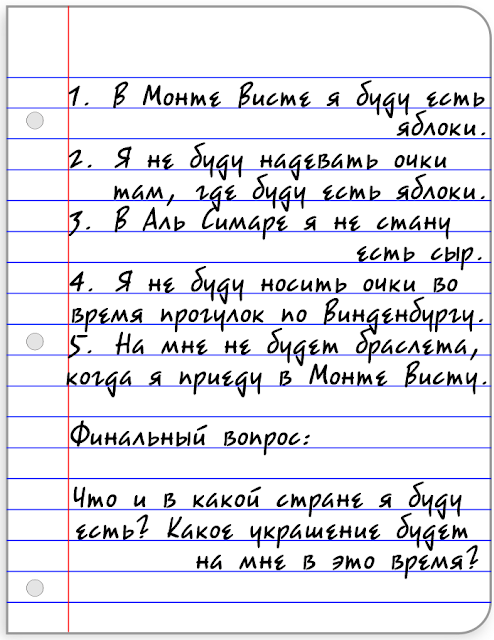 1. В Монте Висте я буду есть
яблоки.
2. Я не буду надевать очки
там, где буду есть яблоки.
3. В Аль Симаре я не стану
есть сыр.
4. Я не буду носить очки во
время прогулок по Винденбургу.
5. На мне не будет браслета,
когда я приеду в Монте Висту.
Финальный вопрос:
Что и в какой стране я буду
есть? Какое украшение будет
на мне в это время?